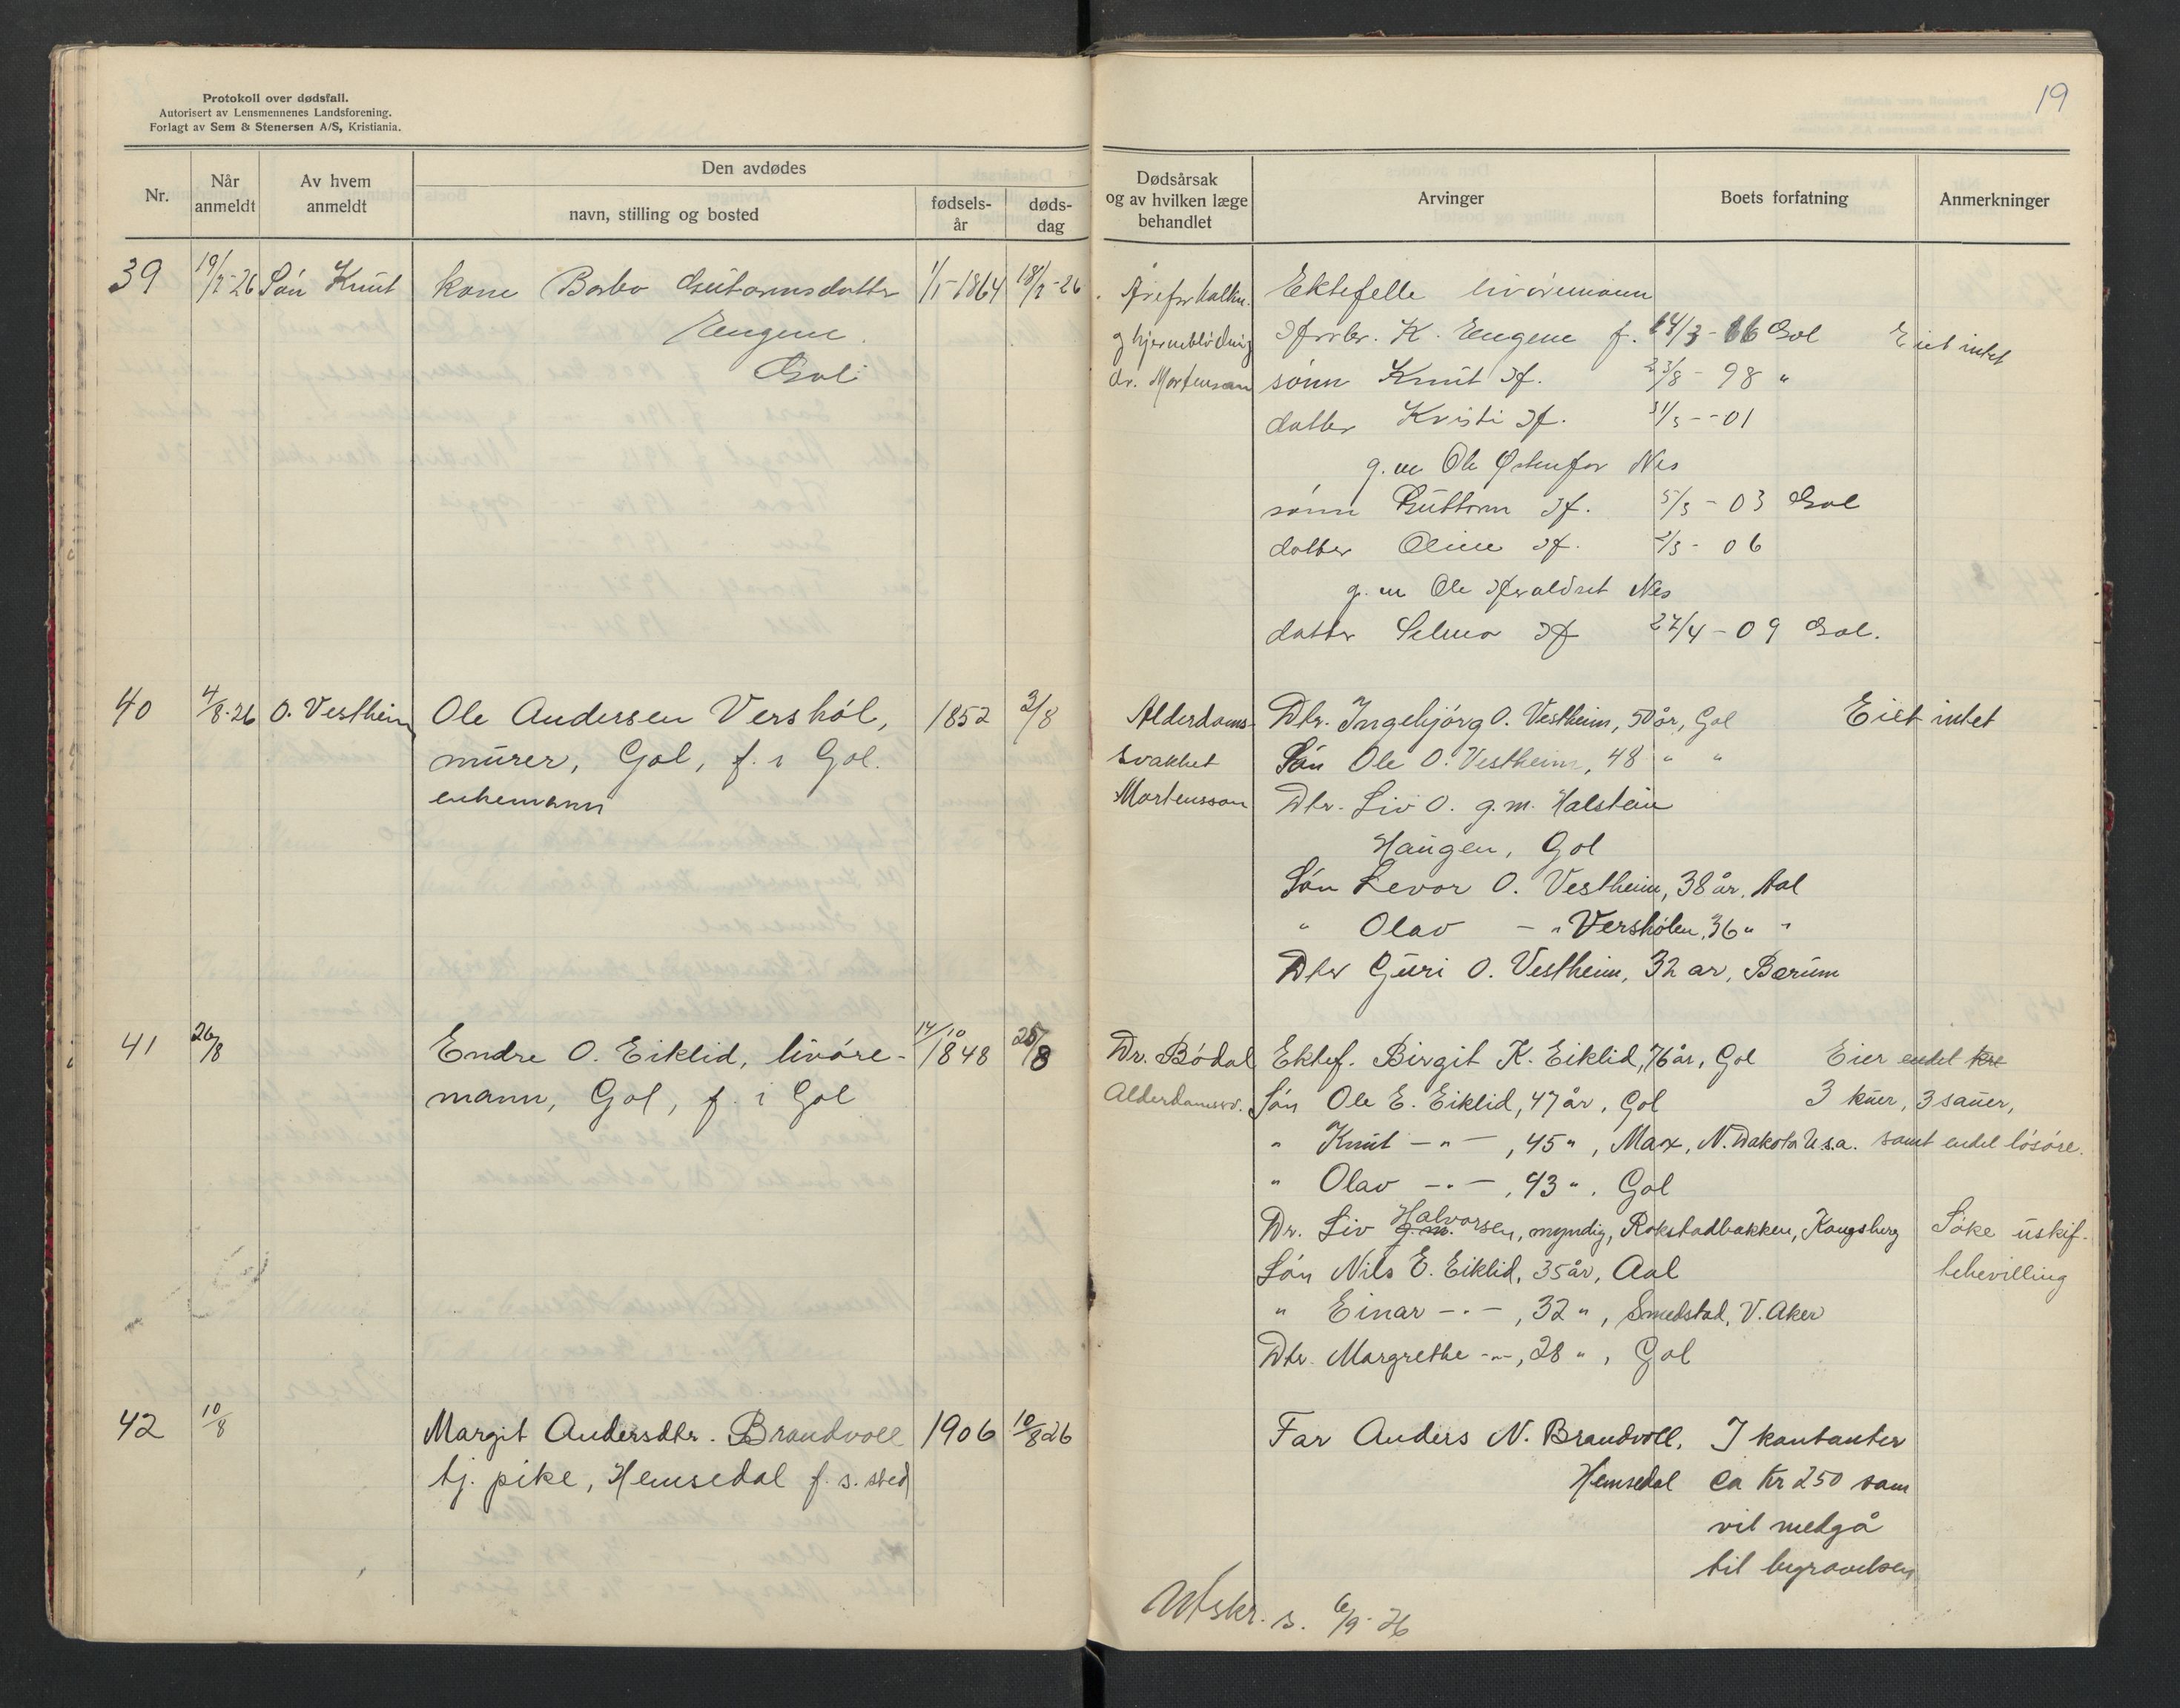 Protokoll over dødsfall.
Autorisert av Lensmennenes Landsforening.
Forlagt av Sem & Stenersen A/S, Kristiania.
Nr.
Når anmeldt
Av hvem anmeldt
Den avdødes
navn, stilling og bosted
fødsels-år
døds-dag
39 19/7-26 Søn Knut kone Barbo Guttormsdatter 1/1-1864 18/7-26
Engene
Gol
40 4/8-26 O. Vestheim Ole Andersen Vershøl, 1852 3/8
murer, Gol, f. i Gol.
enkemann
41 26/8 Endre O. Eiklid, livøre- 14/10 1848 25/8
mann, Gol, f. i Gol
42 10/8 Margit Andersdtr. Brandvoll 1906 10/8 26
tj. pike, Hemsedal f. s. sted
19
Dødsårsak
og av hvilken læge
behandlet
Arvinger
Boets forfatning
Anmerkninger
Åreforkalkn. Ektefelle livøremann
og hjerneblødning K. Engene f. 14/3-66 Gol Eiet intet
dr. Mortensson sønn Knut 23/8-98 "
datter Kristi 31/5--01
g. m Ole Østenfor Nes
sønn Guttorm 5/3-03 Gol
datter Oline 2/3-06
g. m Ole Nes
datter Selma 27/4-09 Gol.
Alderdoms- Dtr. Ingebjørg O. Vestheim, 50 år, Gol Eiet intet
svakhet Søn Ole O. Vestheim, 48 " "
Mortensson Dtr. Liv O. g.m. Halstein
Haugen, Gol
Søn Levor O. Vestheim, 38 år, Aal
" Olav - " Vershølen, 36 " "
Dtr Guri O. Vestheim, 32 år, Bærum
Dr. Bødal Ektef. Birgit K. Eiklid, 76 år, Gol Eier endel kre
Alderdomssv. Søn Ole E. Eiklid, 47 år, Gol 3 kuer, 3 sauer,
" Knut - " - , 45 ", Max, N. Dakota U.s.a. samt endel løsøre.
" Olav - " - , 43 ", Gol
Dr. Liv g.m. Halvorsen, myndig, Rokstadbakken, Kongsberg Søke uskif.
Søn Nils E. Eiklid, 35 år, Aal bebevilling
" Einar - " - , 32 ", Smedstad, V. Aker
Dtr. Margrethe - " -, 28 ", Gol
Far Anders N. Brandvoll, I kontanter
Hemsedal Ca Kr 250 som
vil medgå
til begravelsen
Utskr. s. 6/9-26